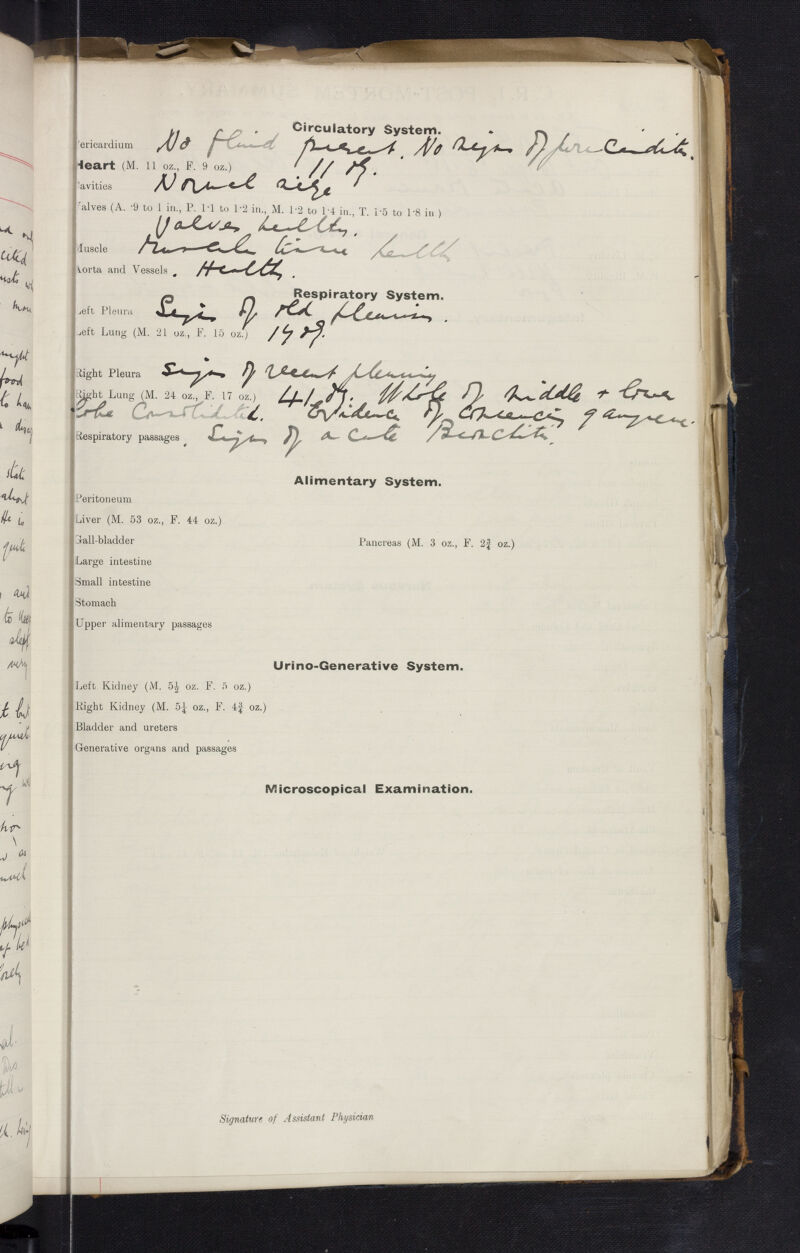 Circulatory System.
ericardium No fluid present. No signs of pericarditis.
Heart (M. 11 oz., F. 9 oz.) 11 oz.
avities Normal size
alves (A. ·9 to 1 in., P. 1·1 to 1·2 in., M. 1·2 to 1·4 in., T. 1·5 to 1·8 in )
Valves healthy.
Muscle Muscle tissue healthy
Aorta and Vessels. Healthy.
Respiratory System.
Left Pleura Signs of old pleurisy.
Left Lung (M. 21 oz., F. 15 oz.) 19 oz.
Right Pleura Signs of recent pleurisy
Right Lung (M. 24 oz., F. 17 oz.) 41 oz. Whole of middle + lower
lobe Consolidated. Evidence of commencing gangrene.
Respiratory passages. Signs of acute Bronchitis.
Alimentary System.
Peritoneum
Liver (M. 53 oz., F. 44 oz.)
Gall-bladder Pancreas (M. 3 oz., F. 2¾ oz.)
Large intestine
Small intestine
Stomach
Upper alimentary passages
Urino-Generative System.
Left Kidney (M. 5½ oz. F. 5 oz.)
Right Kidney (M. 5¼ oz., F. 4¾ oz.)
Bladder and ureters
Generative organs and passages
Microscopical Examination.
Signature of Assistant Physician